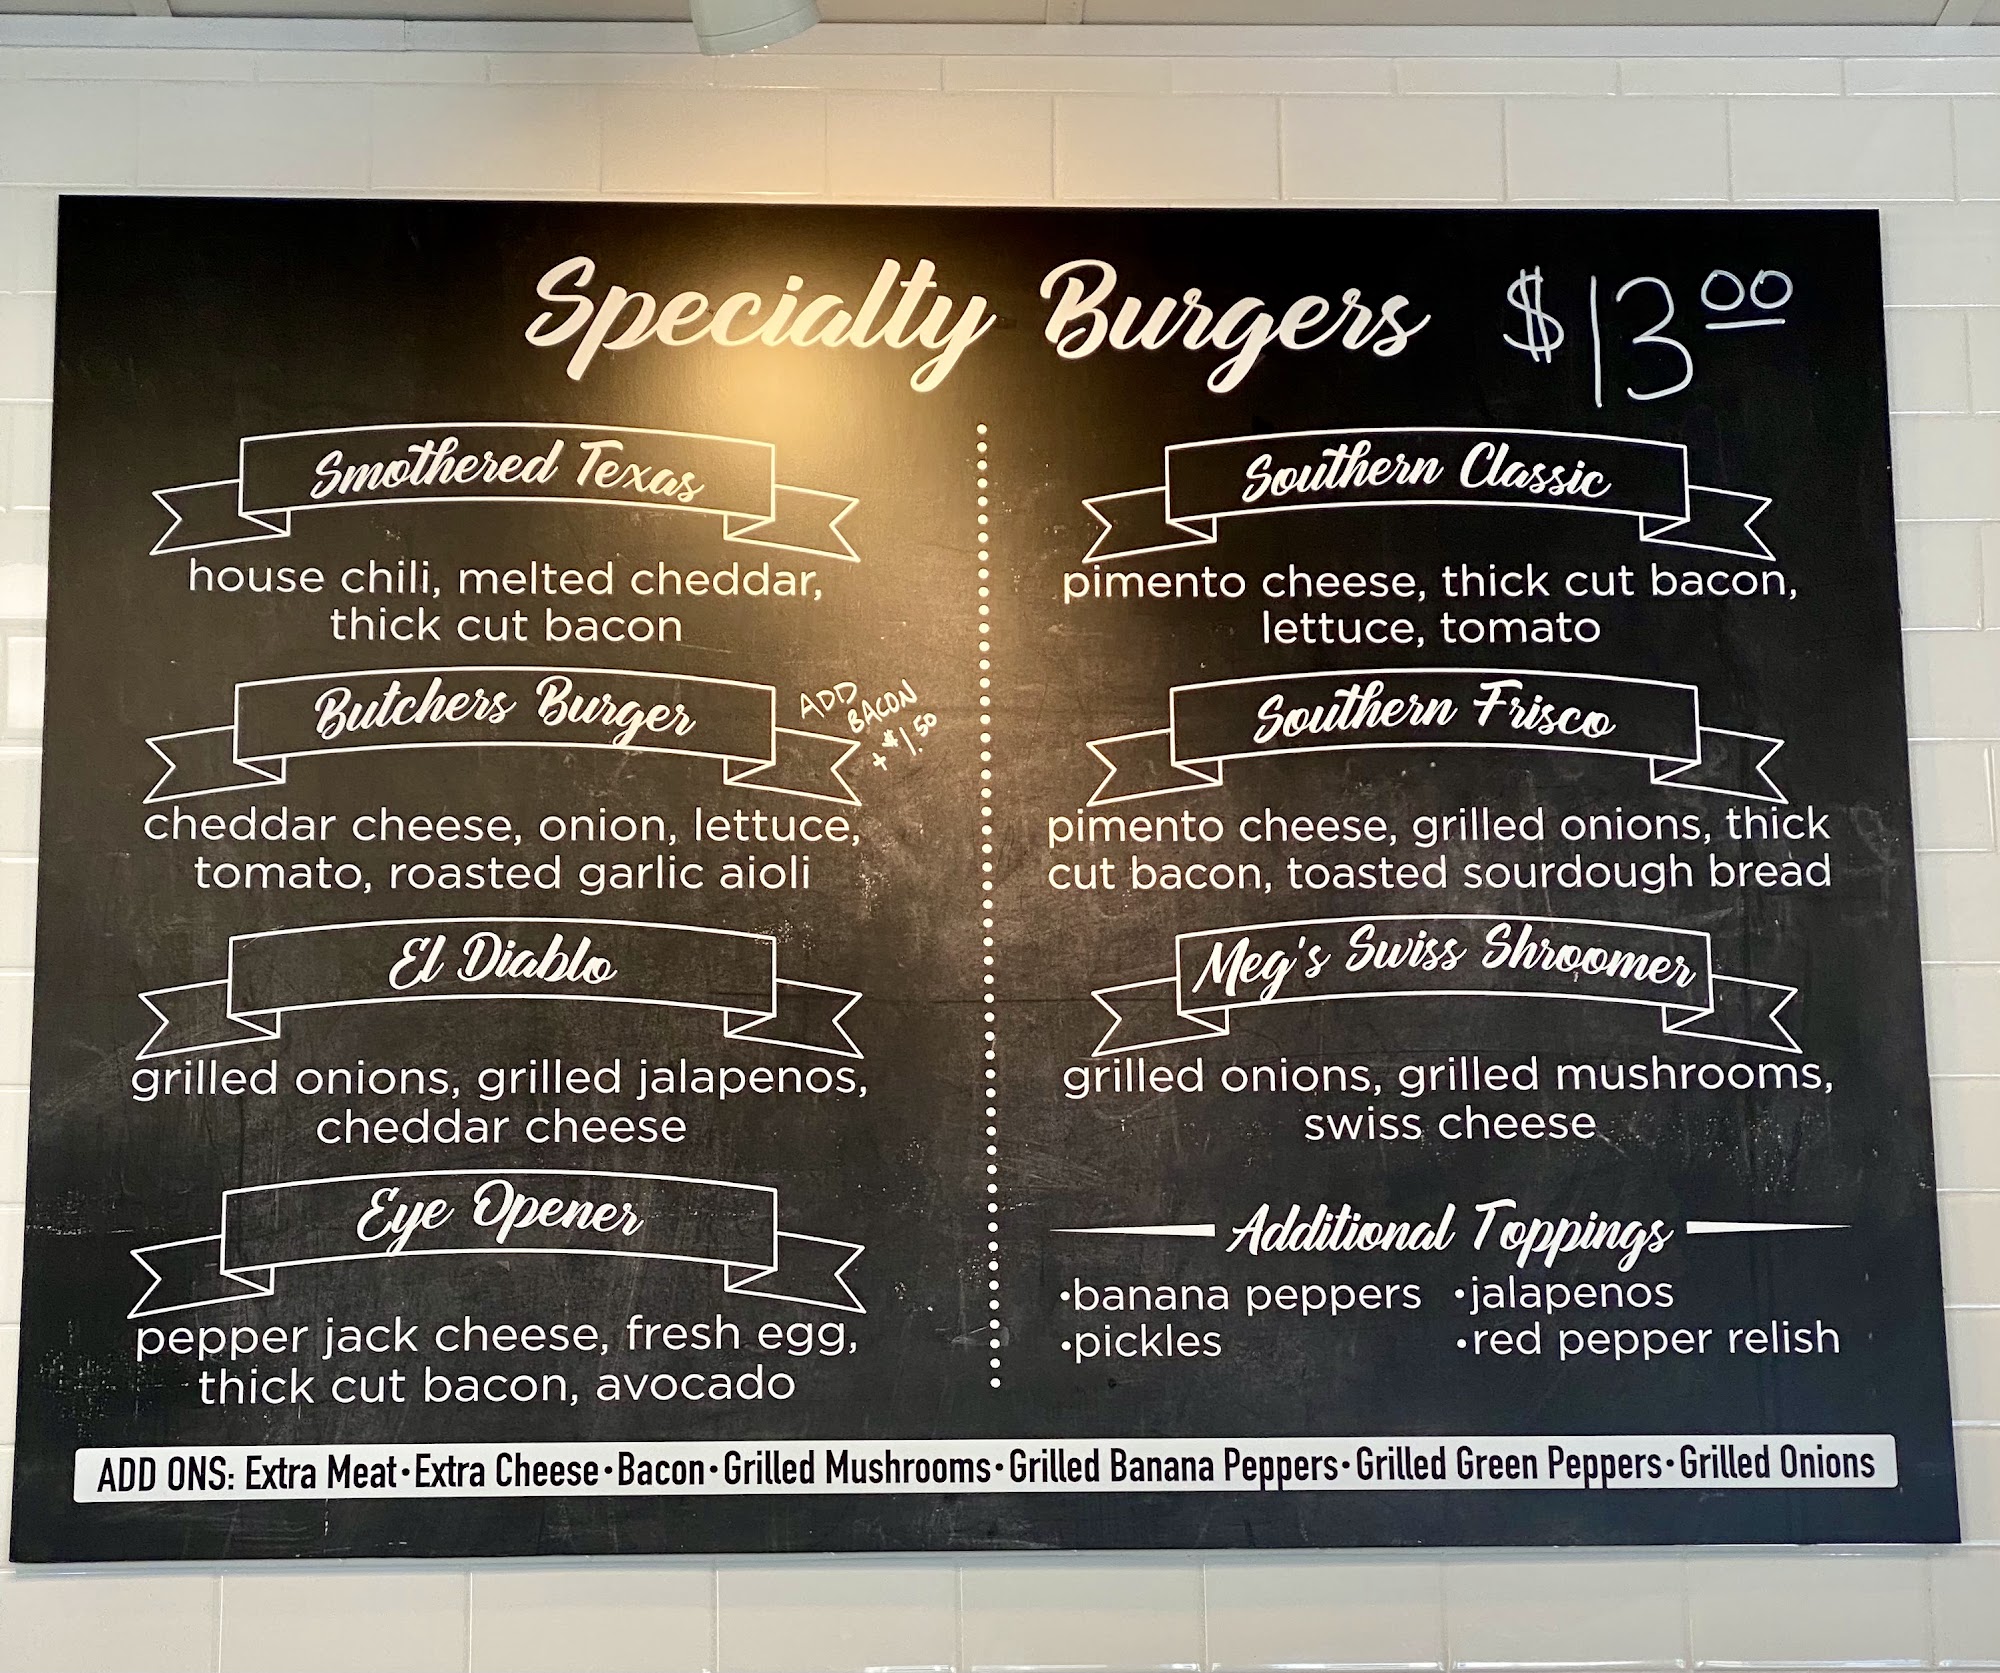 Specialty Burgers $13.00
Smothered Texas
house chili, melted cheddar,
thick cut bacon
Butchers Burger
ADD
BACON
+ $1.50
cheddar cheese, onion, lettuce,
tomato, roasted garlic aioli
El Diablo
grilled onions, grilled jalapenos,
cheddar cheese
Eye Opener
pepper jack cheese, fresh egg,
thick cut bacon, avocado
Southern Classic
pimento cheese, thick cut bacon,
lettuce, tomato
Southern Frisco
pimento cheese, grilled onions, thick
cut bacon, toasted sourdough bread
Meg's Swiss Shroomer
grilled onions, grilled mushrooms,
swiss cheese
Additional Toppings
•banana peppers •jalapenos
•pickles •red pepper relish
ADD ONS: Extra Meat•Extra Cheese•Bacon•Grilled Mushrooms•Grilled Banana Peppers•Grilled Green Peppers•Grilled Onions